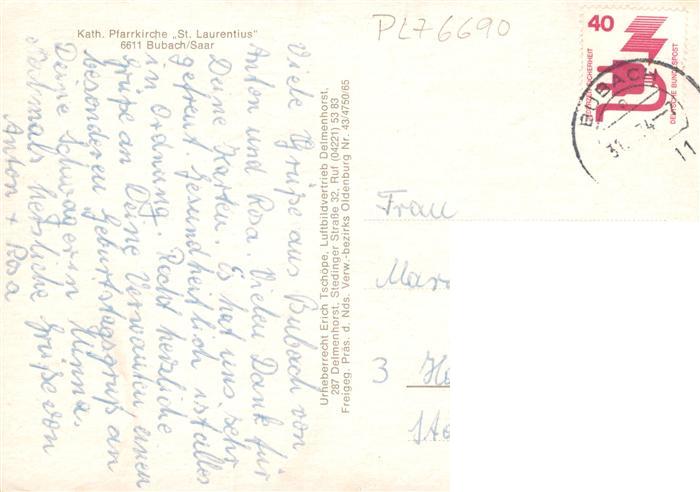 Kath. Pfarrkirche „St. Laurentius"
6611 Bubach/Saar
PL76690
40
DEUTSCHE BUNDESPOST
BUBACH
Viele Grüße aus Bubach von
Anton und Rosa. Vielen Dank für
Deine Karten. Es hat uns sehr
gefreut. Gesundheitlich ist alles
in Ordnung. Recht herzliche
Grüße an Deine Verwanten einen
besonderen Geburtstagsgruß an
Deine Schwägerin Minna.
Nochmals herzliche Grüße von
Anton + Rosa
Urheberrecht Erich Tschöpe, Luftbildvertrieb Delmenhorst,
287 Delmenhorst, Stedinger Straße 32, Ruf (04221) 53 83
Freigeg. Präs. d. Nds. Verw.-bezirks Oldenburg Nr. 43/4750/65
Frau
3